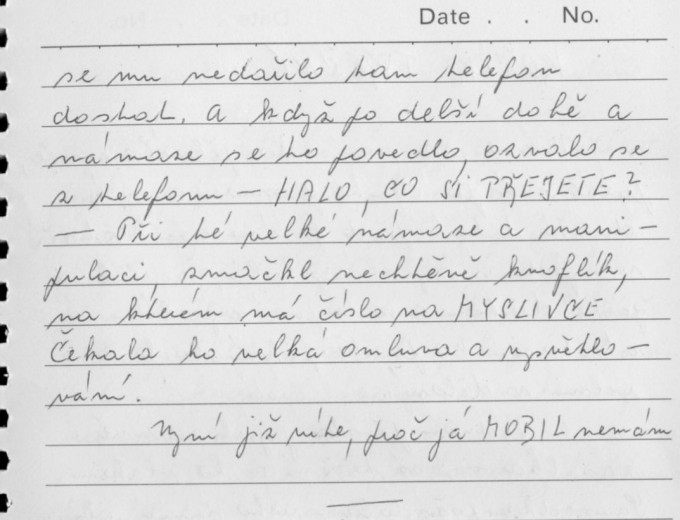 Date . . No.
se mu nedařilo tam telefon
dostat. A když po delší době a
námaze se to povedlo, ozvalo se
z telefonu — HALO, CO SI PŘEJETE?
— Při té velké námaze a mani-
pulaci, zmačkl nechtěně knoflík,
na kterém má číslo na MYSLIVCE
Čekala ho velká omluva a vysvětlo-
vání.
Nyní již víte, proč já MOBIL nemám